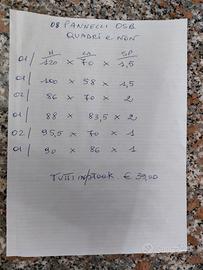 08 PANNELLI OSB
QUADRI E NON
H LA SP
01/ 120 x 70 x 1,5
01/ 100 x 58 x 1,5
02/ 86 x 70 x 2
01/ 88 x 83,5 x 2
02/ 95,5 x 70 x 1
01/ 90 x 86 x 1
TUTTI € 39,00